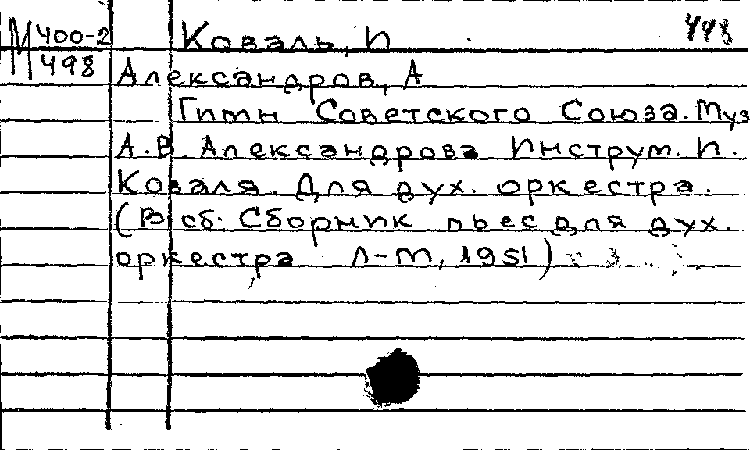 М 400-2 Коваль, И 448
498 Александров, А
Гимн Советского Союза. Муз
А.В. Александрова Инструм. И.
Коваля. Для дух. оркестра.
(В сб. Сборник пьес для дух.
оркестра Л-М, 1951)